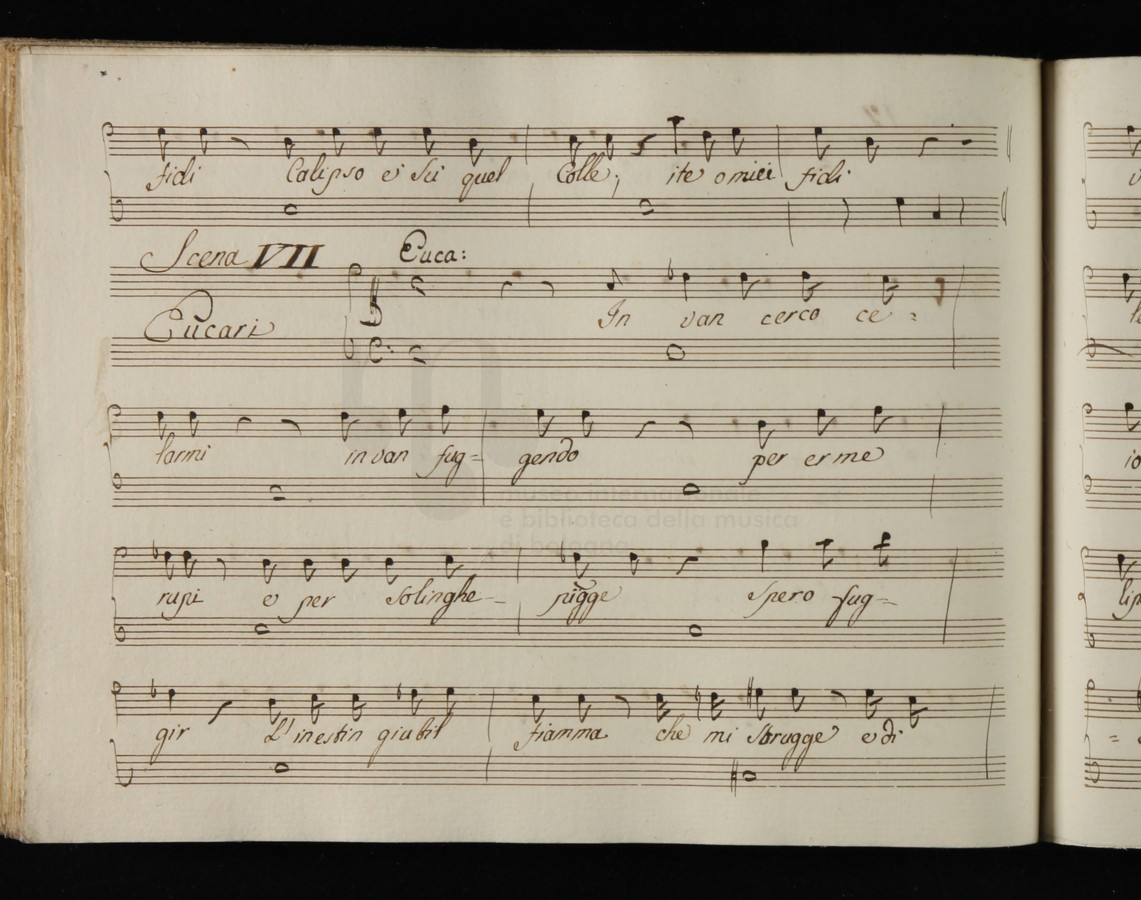 fidi Calipso e' Su quel Colle; ite o miei fidi
Scena VII Euca:
In van cerco ce =
Eucari
larmi in van fug= gendo per erme
rupi e per Solinghe- piagge Spero fug=
gir L'inestin guibil fiamma che mi Strugge e di
museo internazionale
e biblioteca della musica
di bologna